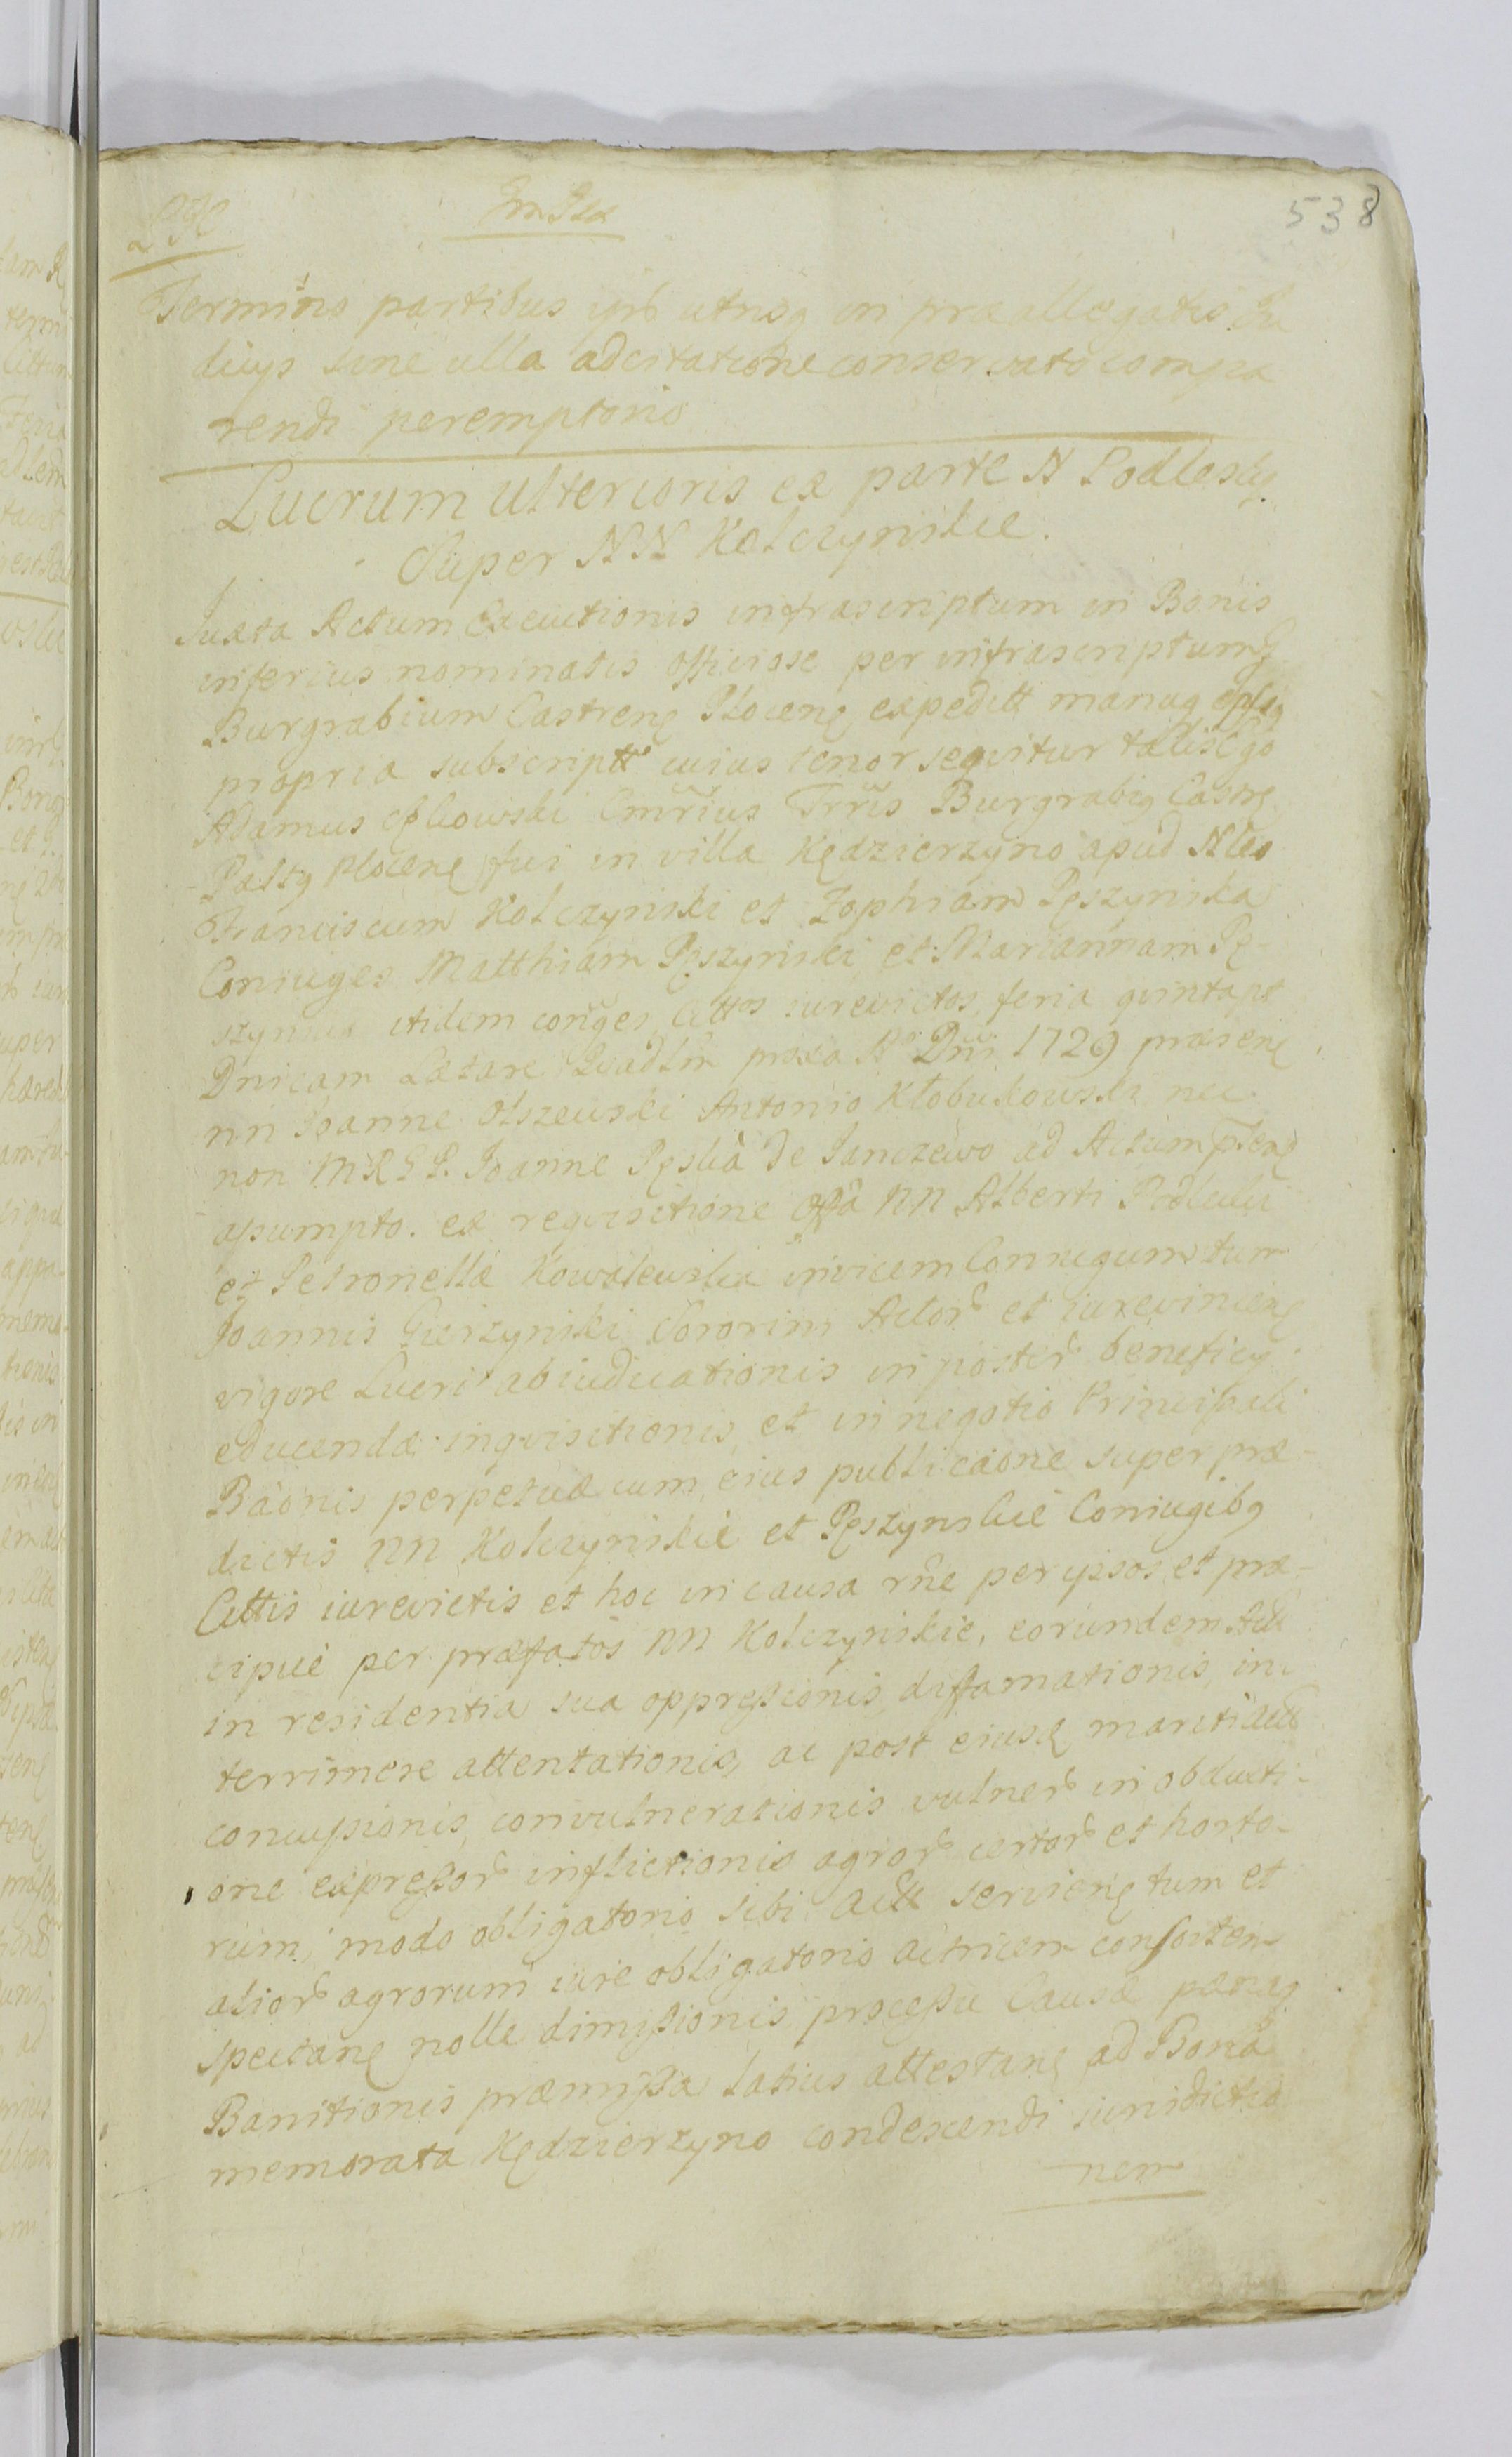 538
Termino partibus ipsis utrisq in praeallegatis Iu
dicys sine ulla adcitatione conservato compa
rendi peremptorio
Lucrum ulterioris ex parte N Podlesky
Super NN Kolczynskie.
Iuxta Actum Executionis infrascriptum in Bonis
inferius nominatis officiose per infrascriptum
Burgrabium Castren Plocen expeditt manuq
propria subscriptt cuius tenor sequitur talis Ego
Adamus Burgrabiq Castren
Plocen fui in villa Kędzierzyno apud Nles
Franciscum Kolczynski et Zophiam Pęszynska
Coniuges Matthiam Pęszynski et Mariannam Pę-
szynska itidem conges Cittos iurevictos feria quinta pt
Dnicam Laetare Quadlem proxa Ao Dni 1729 praesen
nn Ioanne Olszewski Antonio Kłobukowski nec
non Ioanne Pęska de Janczewo ad Actum
assumpto. ex requisitione Offa nn Alberti Podleski
et Petronella Kowalewska invicem Coniugum tum
Joannis Sororini Actor et iurevincen
vigore Lucri abiudicationis in poster beneficy
educenda inquisitionis et in negotio Principali
Baonis perpetua cum eius publicaone super prae-
dictis nn Kolczynskie et Pęszynskie Coniugibq
Cittis iurevictis et hoc in causa rne per ipsos et prae-
cipue per praefatos nn Kolczynskie, eorundem
in residentia sua oppressionis diffamationis, in-
terrimere attentationis, ac post eiusd mariti
concussionis, convulnerationis vulner in obducti-
one expressor inflictionis agror certor et horto-
rum, modo obligatorio sibi servien tum et
alior agrorum iure obligatorio actricem consortem
spectan nolle dimissionis processu Causae paenaq
Banitionis praemissa latius attestan ad Bona
memorata Kędzierzyno condescendi iurisdictio
nem